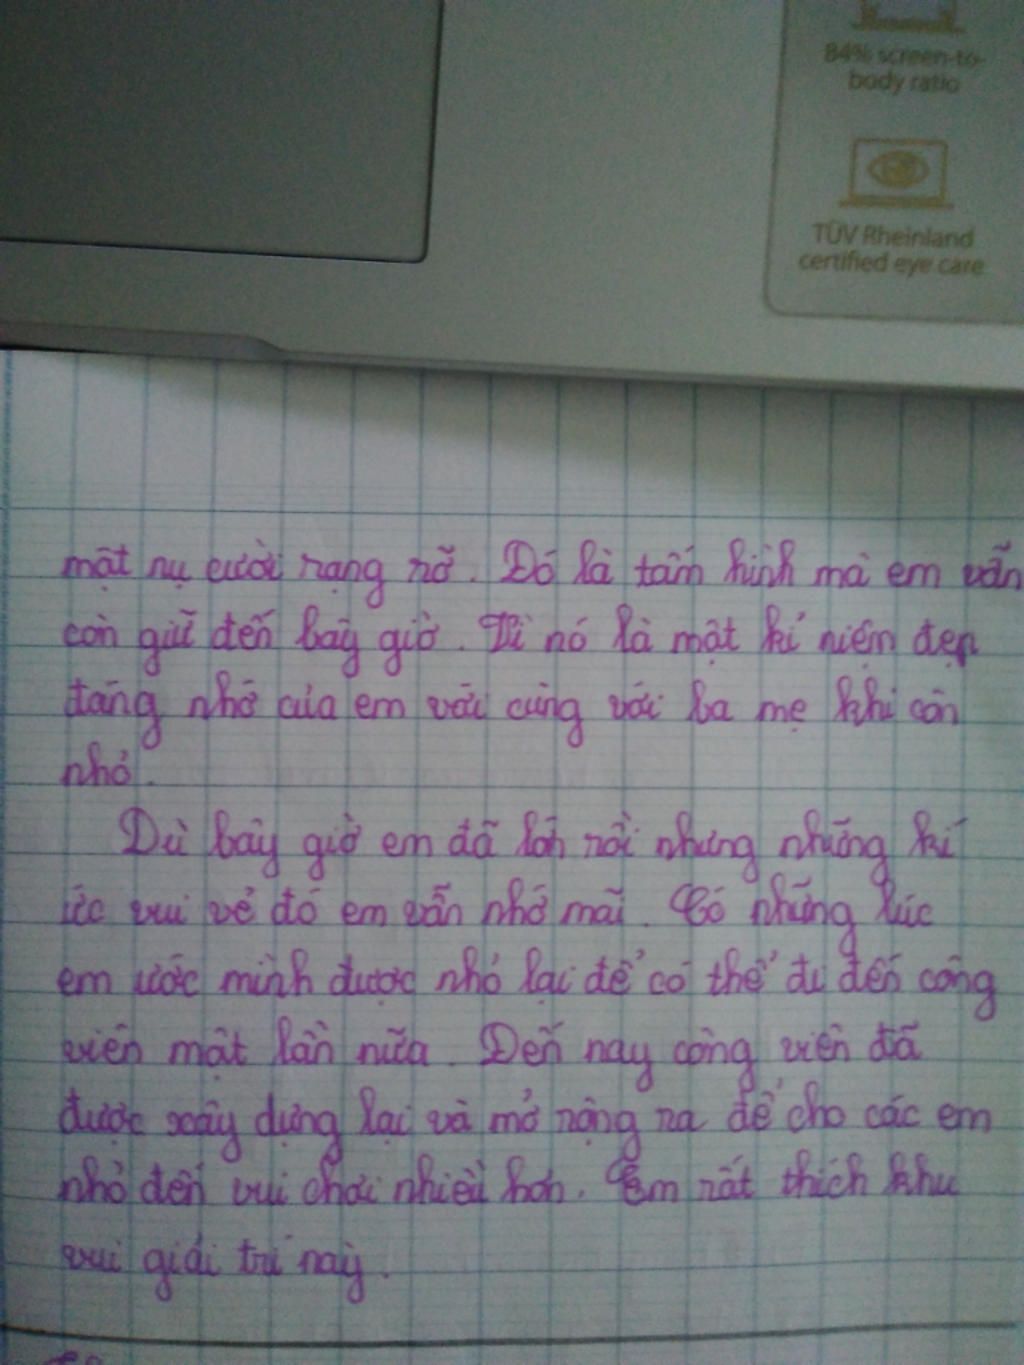 84% screen-to-
body ratio
TÜV Rheinland
certified eye care
một nụ cười rạng rỡ. Đó là tấm hình mà em vẫn
còn giữ đến bây giờ. Vì nó là một kí niệm đẹp
đáng nhớ của em với cùng với ba mẹ khi còn
nhỏ.
Dù bây giờ em đã lớn rồi nhưng những kí
ức vui vẻ đó em vẫn nhớ mãi. Có những lúc
em ước mình được nhỏ lại để có thể đi đến công
viên một lần nữa. Đến nay công viên đã
được xây dựng lại và mở rộng ra để cho các em
nhỏ đến vui chơi nhiều hơn. Em rất thích khu
vui giải trí này.